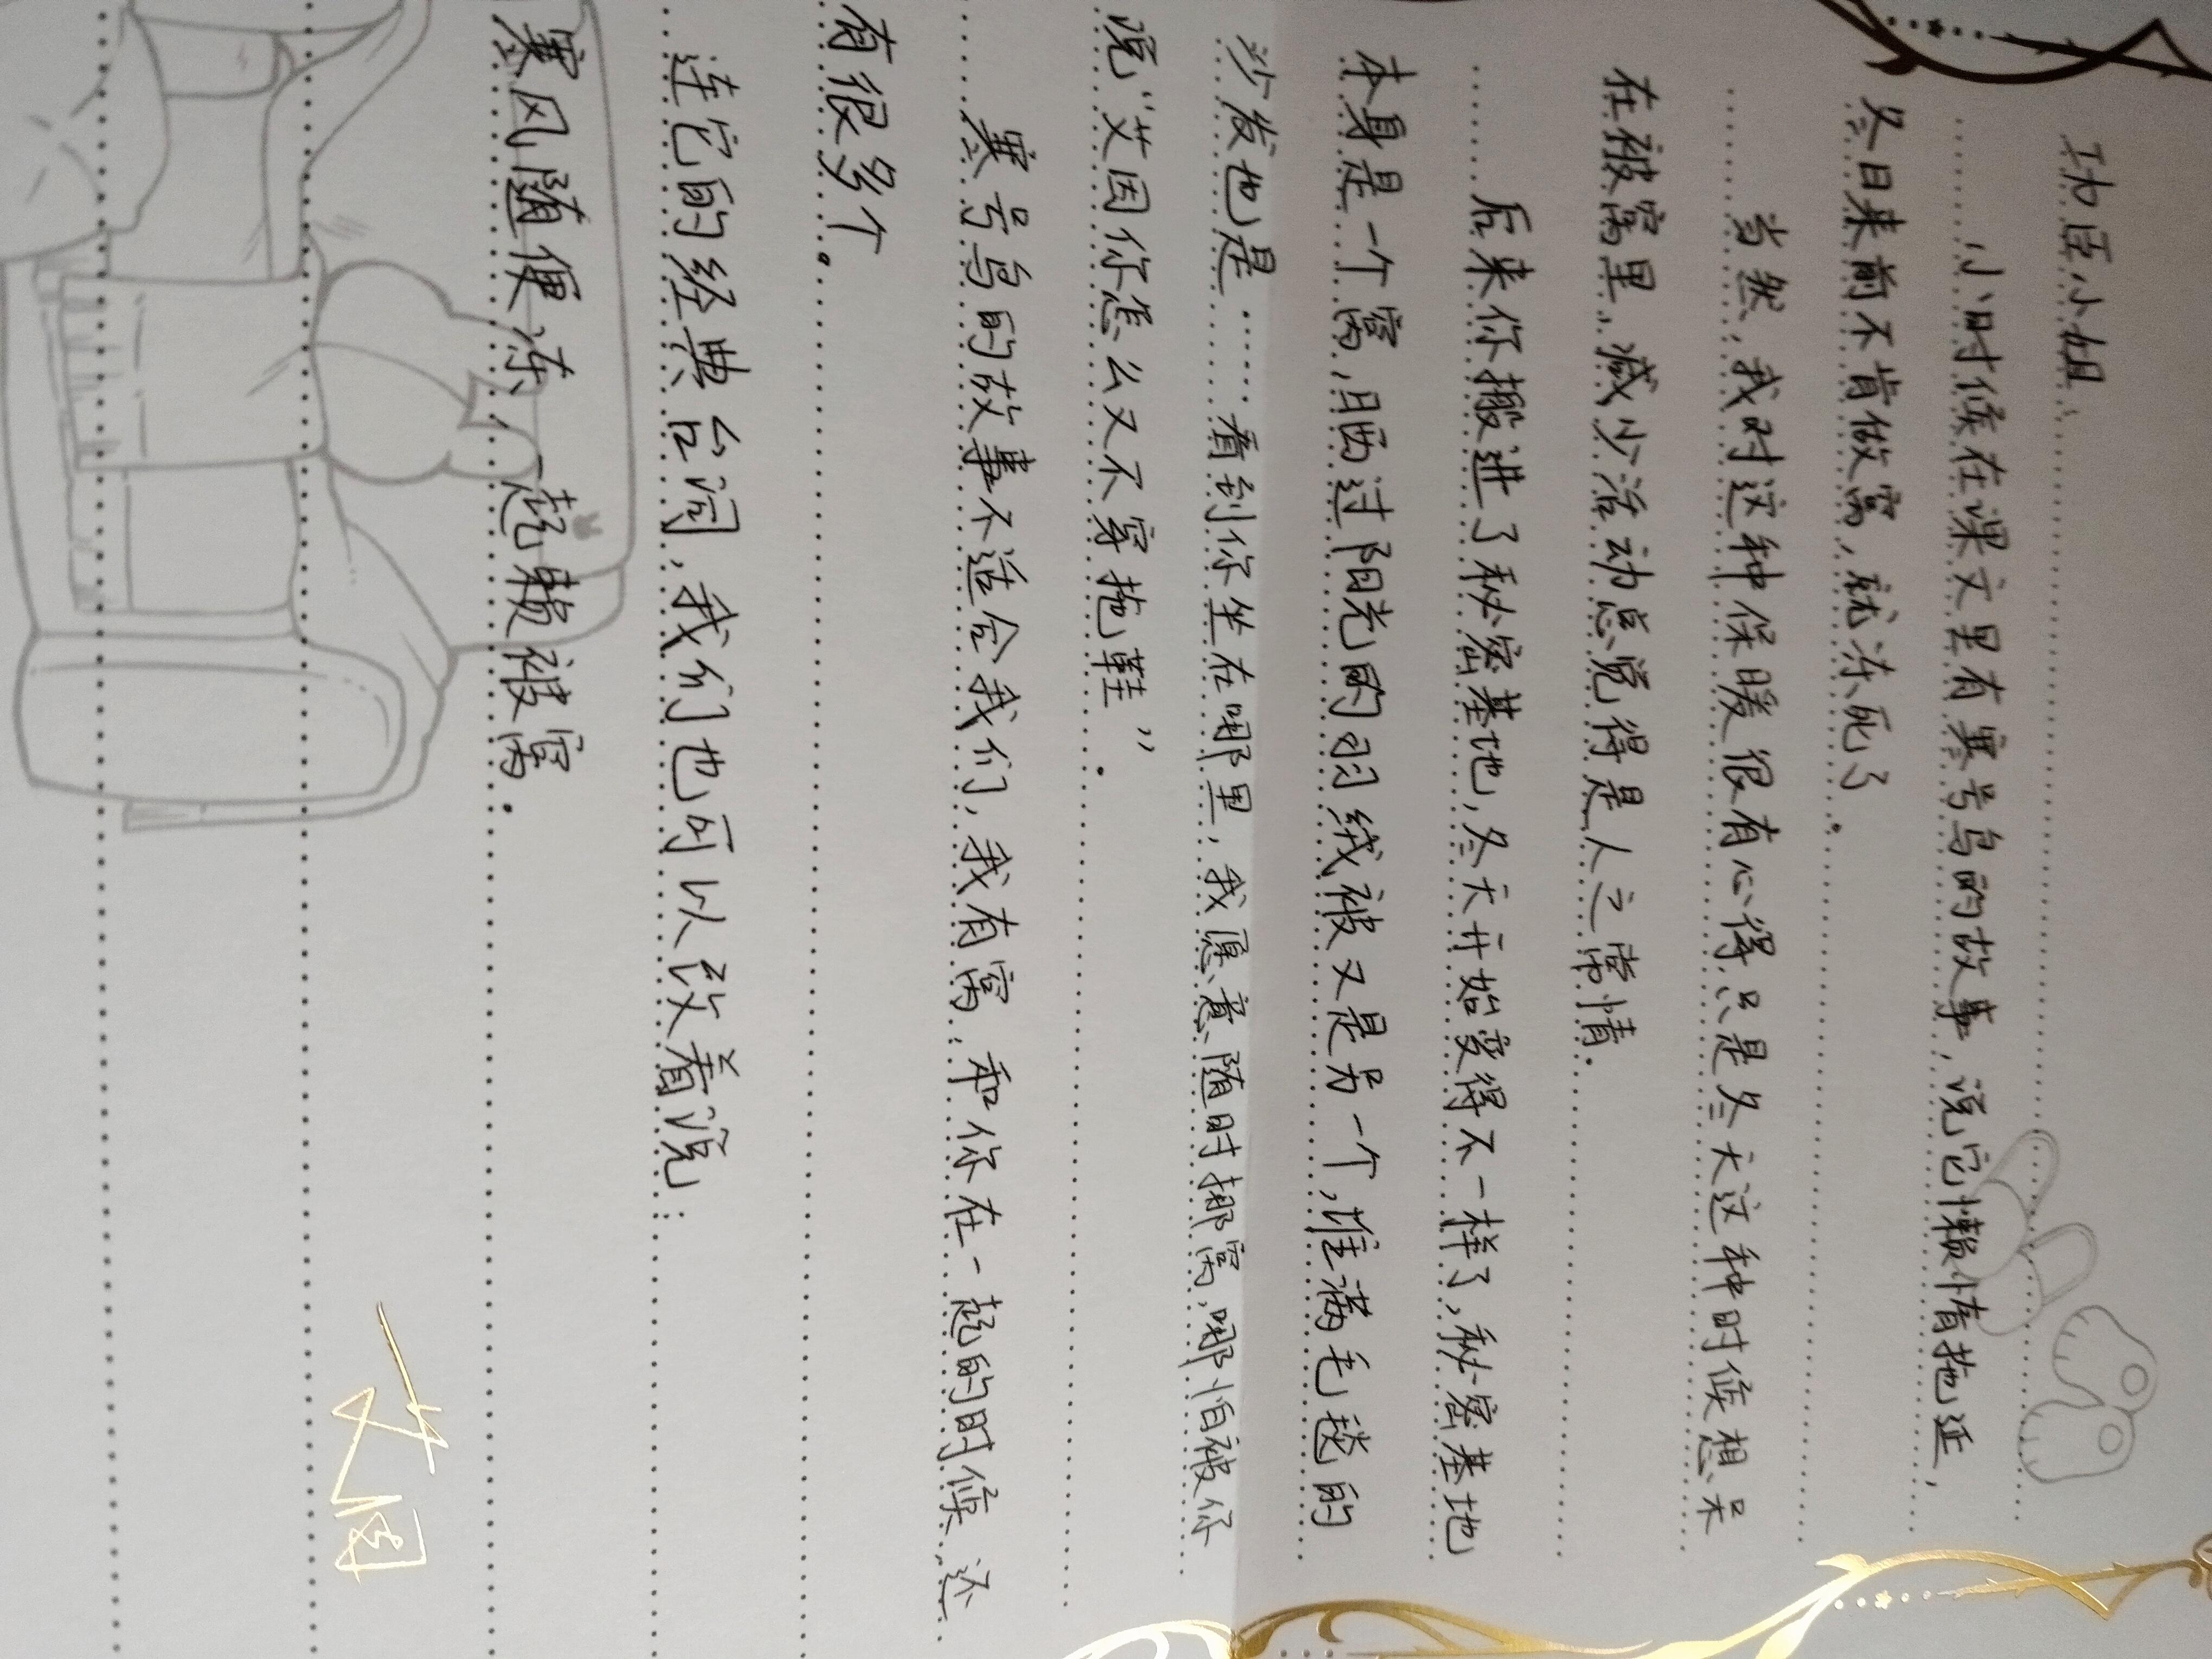 功臣小姐：
小时候在课文里有寒号鸟的故事，说它懒惰拖延，
冬日来前不肯做窝，就冻死了．
当然，我对这种保暖很有心得只是冬天这种时候想呆
在被窝里，减少活动总觉得是人之常情．
后来你搬进了秘密基地，冬天开始变得不一样了，秘密基地
本身是一个窝，晒过阳光的羽绒被又是另一个，堆满毛毯的
沙发也是……看到你坐在哪里，我愿意随时挪窝，哪怕被你
说“艾因你怎么又不穿拖鞋”．
寒号鸟的故事不适合我们，我有窝，和你在一起的时候，还
有很多个。
连它的经典台词，我们也可以改着说：
寒风随便冻，一起赖被窝．
艾因